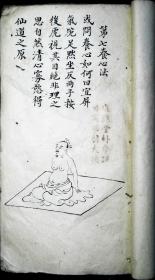 第七養心法
或問養心如何曰宜屏
氣跪足然坐反两手按
後虎視其目絕非理之
思自然清心寡慾得
仙道之原